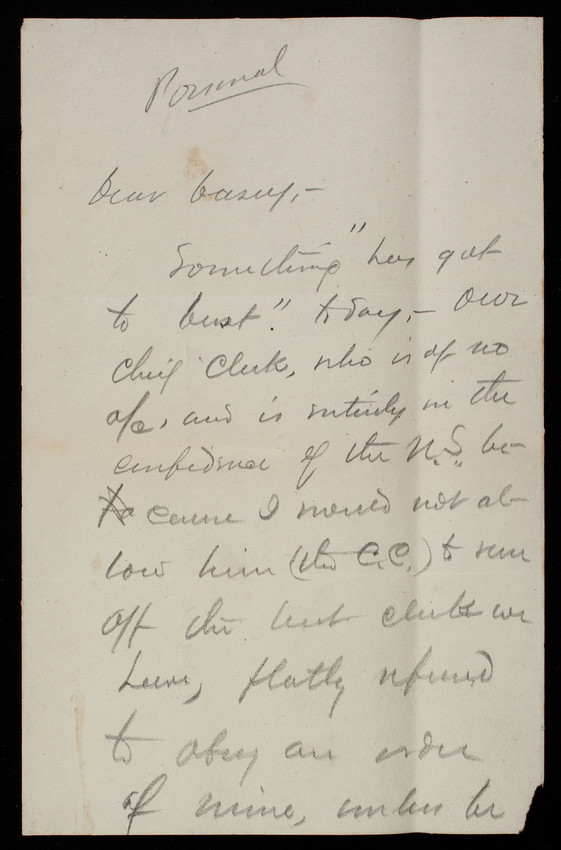 Personal
Dear Casey,-
Something "has got
to bust" today,- Our
chief Clerk, who is of no
a/c, and is entirely in the
confidence of the N.S. be-
cause I would not al-
low him (the C.C.) to run
off the best clerk we
have, flatly refused
to obey an order
of mine, unless he